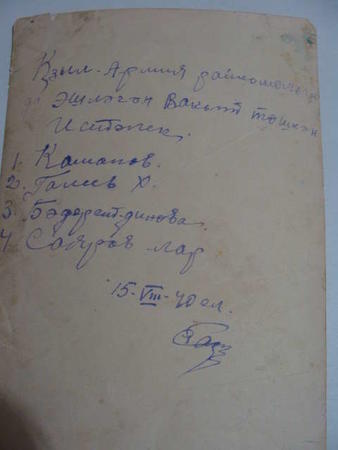 Кзыл-Армия райкомында
эшлэгэн Вакытт тошкэн
истэлек.
1. Камалов.
2. Галиев Х.
3. Бэдерет-динова.
4. Сабиров лар
15-VIII-40 ел.